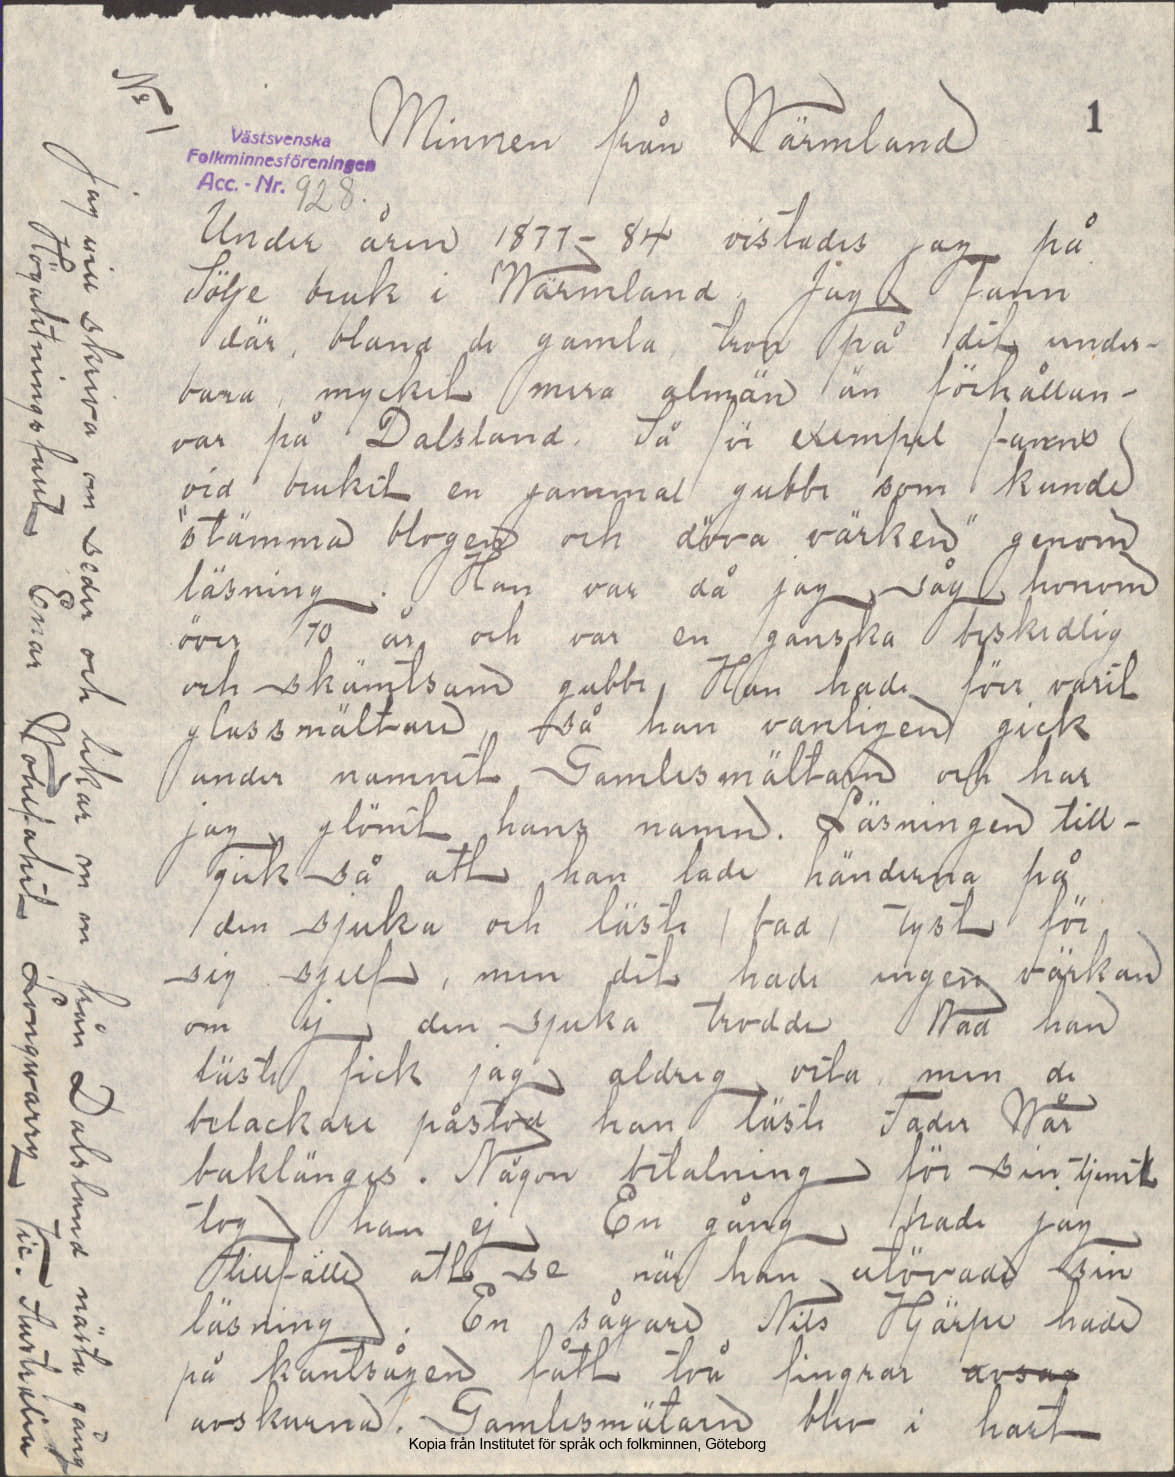 Minnen från Wärmland
1
No 1
Västsvenska
Folkminnesföreningen
Acc.-Nr. 928.
Under åren 1877-84 vistades jag på
Sölje bruk i Wärmland. Jag fann
där, bland de gamla, tron på det under-
bara, myckit mera almän än förhållan-
var på Dalsland. Så för exempel fanns
vid bruket en gammal gubbe som kunde
"stämma blogen och döva värken" genom
läsning. Han var då jag såg honom
över 70 år och var en ganska beskedlig
och skämtsam gubbe, Han hade förr varit
glassmältare, så han vanligen gick
under namnet Gamlesmältarn och har
jag glömt hans namn. Läsningen till-
gick så att han lade händerna på
den sjuka och läste, bad, tyst för
sig sjelf, men det hade ingen värkan
om ej den sjuka trodde Wad han
läste fick jag aldrig veta, men de
belackare påstod han läste Fader Wår
baklänges. Någon betalning för sin tjenst
tog han ej En gång hade jag
tillfälle att se när han utövade sin
läsning. En sågare Nils Hjärpe hade
på kantsågen fått två fingrar avsag
avskurna. Gamlesmätarn blev i hast
Jag vill skriva om seder och lekar m m från Dalsland nästa gång
Högaktningsfullt Enar Longwarry Vic. Australien
Kopia från Institutet för språk och folkminnen, Göteborg